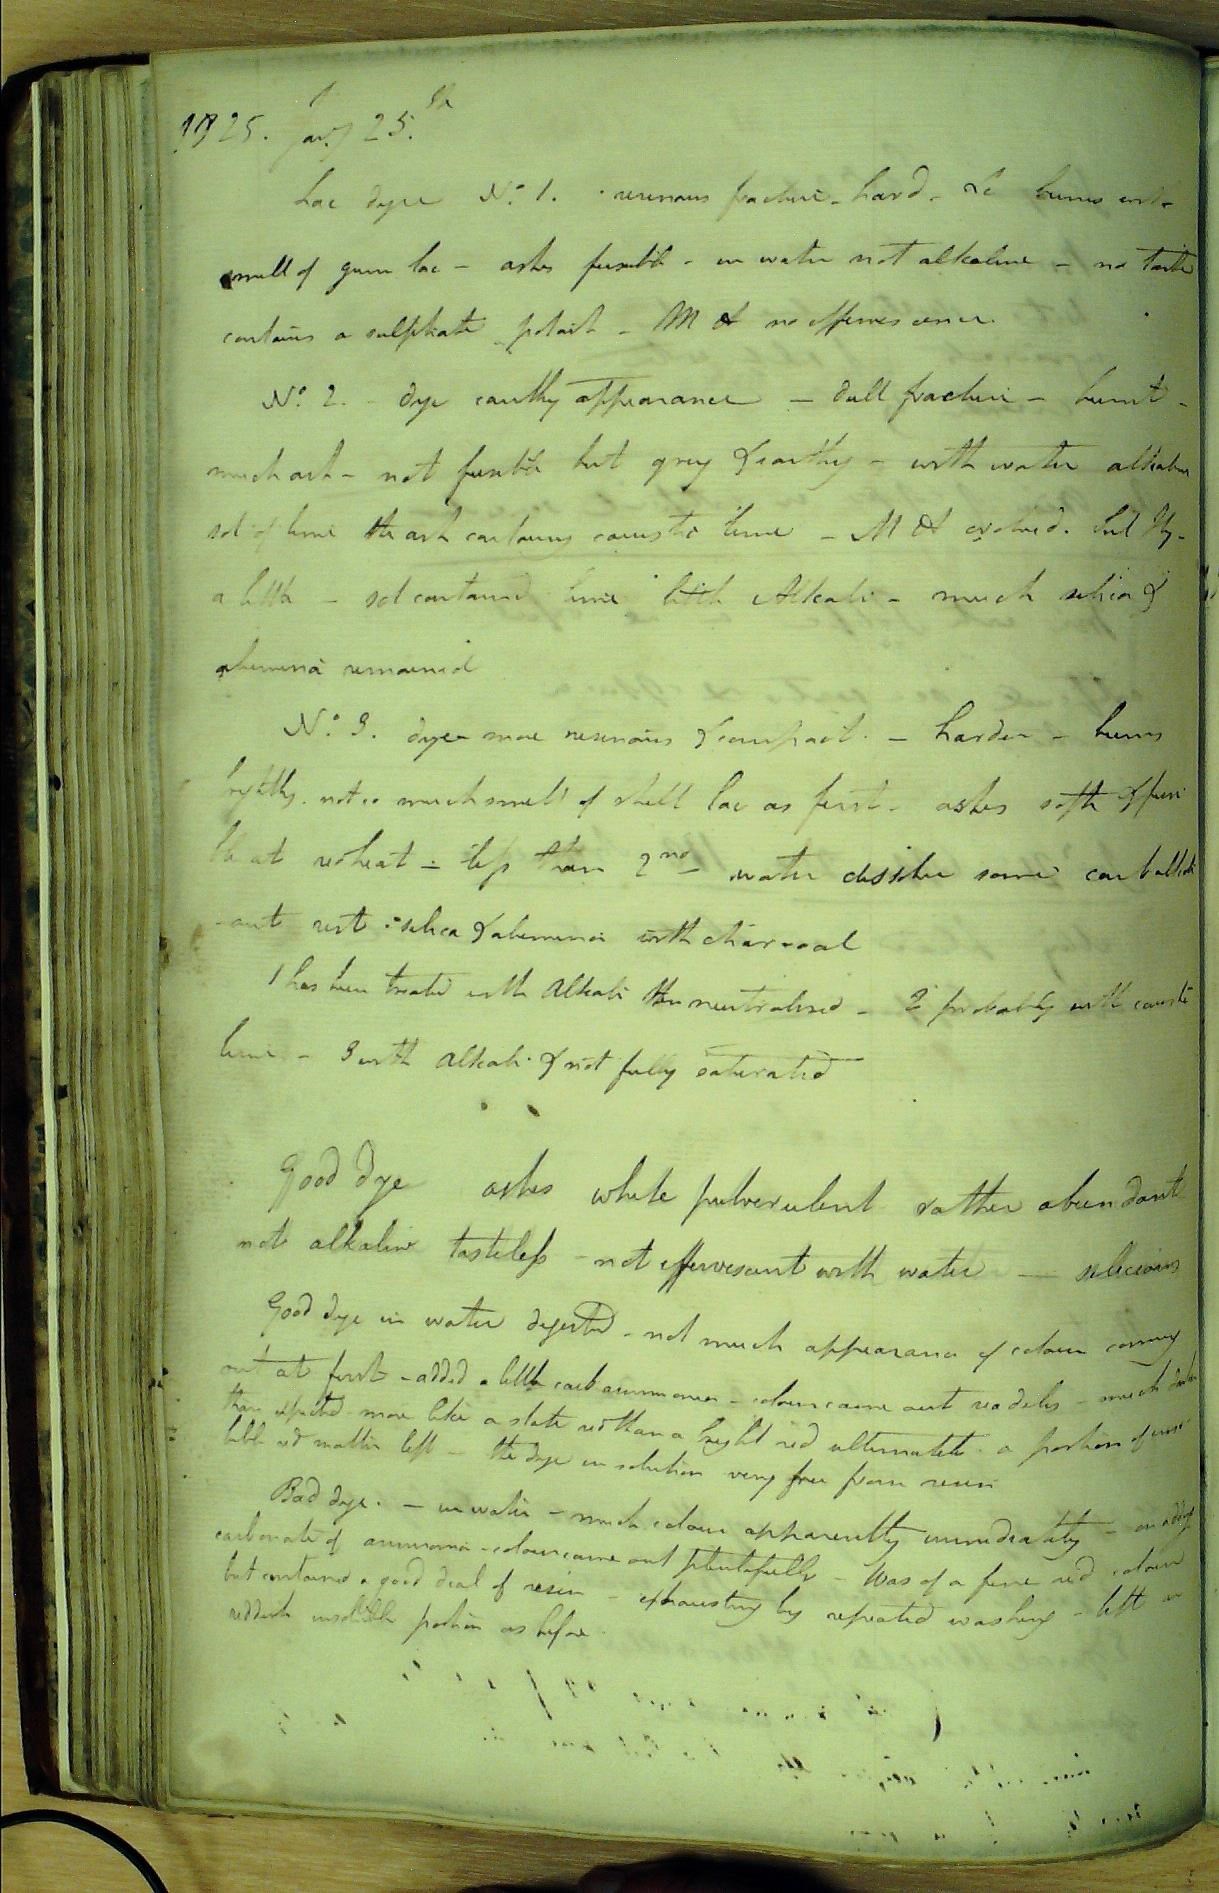 1825. Jany 25.th
Lac dye No. 1. resinous fracture - hard - burns with
smell of gum lac - ashes fusible - in water not alkaline - no taste
contains a sulphate potash - M A no effervescence.
No. 2. - dye earthy appearance - dull fracture - burnt -
much ash - not fusible but grey & earthy - with water alkaline
sol of lime the ash contains caustic lime - M A evolved. Sul Hy-
a little - sol contained lime little Alkali - much silica &
alumina remained
No. 3. dye more resinous & compact. - harder - burns
brightly. not so much smell of shell lac as first. ashes soft & fusi
ble at red heat - less than 2nd - water dissolves some carb alkali
- rest silica & alumina with charcoal
1 has been treated with Alkali then neutralised - 2 probably with caustic
lime - 3 with alkali & not fully saturated
Good dye ashes white pulverulent rather abundant
not alkaline tasteless - not effervescent with water - silicious
Good dye in water digested - not much appearance of colour coming
out at first - added a little carb ammonia - colour came out readily - much darker
than expected more like a slate red than a bright red ultimately a portion of inso
luble red matter left - the dye in solution very free from resin
Bad dye. - in water - much colour apparently immediately - on adding
carbonate of ammonia - colour came out plentifully - Was of a fine red colour
but contained a good deal of resin - exhausting by repeated washing - left a
reddish insoluble portion as before.